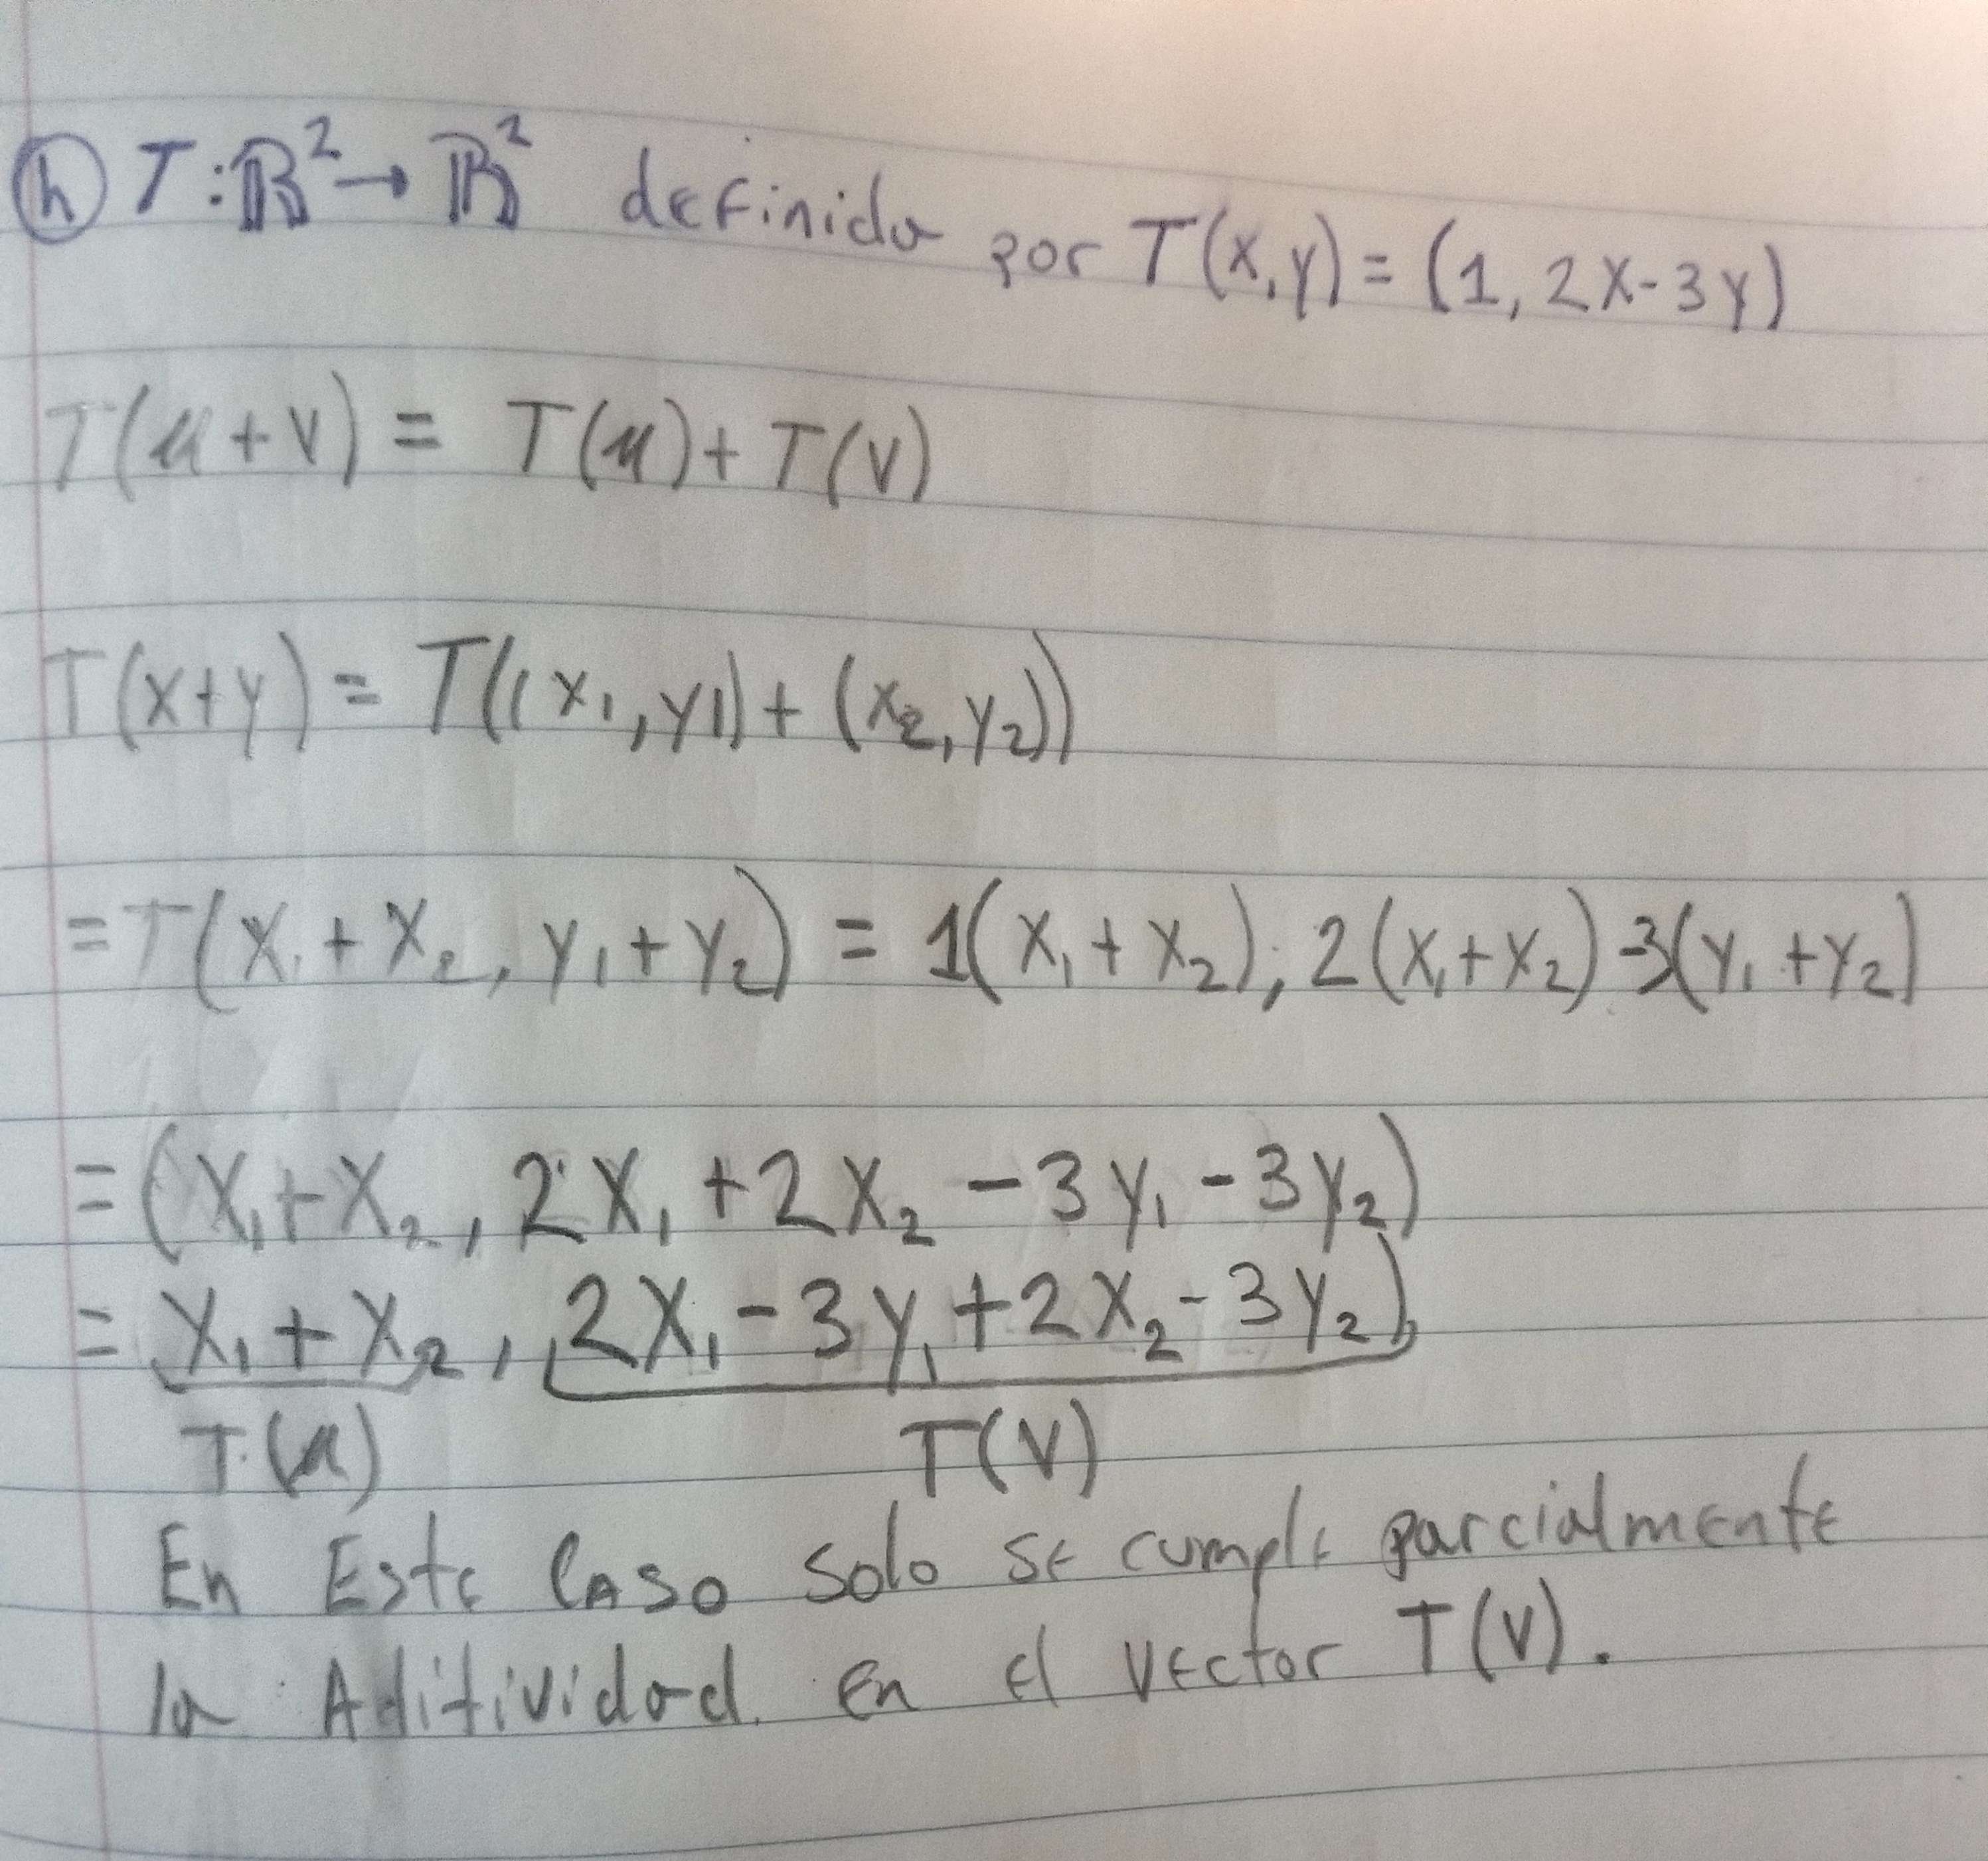 (h) T:ℝ²→ℝ² definida por T(x,y)=(1, 2x-3y)
T(u+v) = T(u)+T(v)
T(x+y) = T((x₁,y1)+(x₂,y₂))
=T(x₁+x₂, y₁+y₂) = 1(x₁+x₂), 2(x₁+x₂)-3(y₁+y₂)
=(x₁+x₂, 2x₁+2x₂-3y₁-3y₂)
= x₁+x₂, 2x₁-3y₁+2x₂-3y₂)
T(u) T(v)
En Este CASO solo se cumple parcialmente
la Aditividad. en el vector T(v).